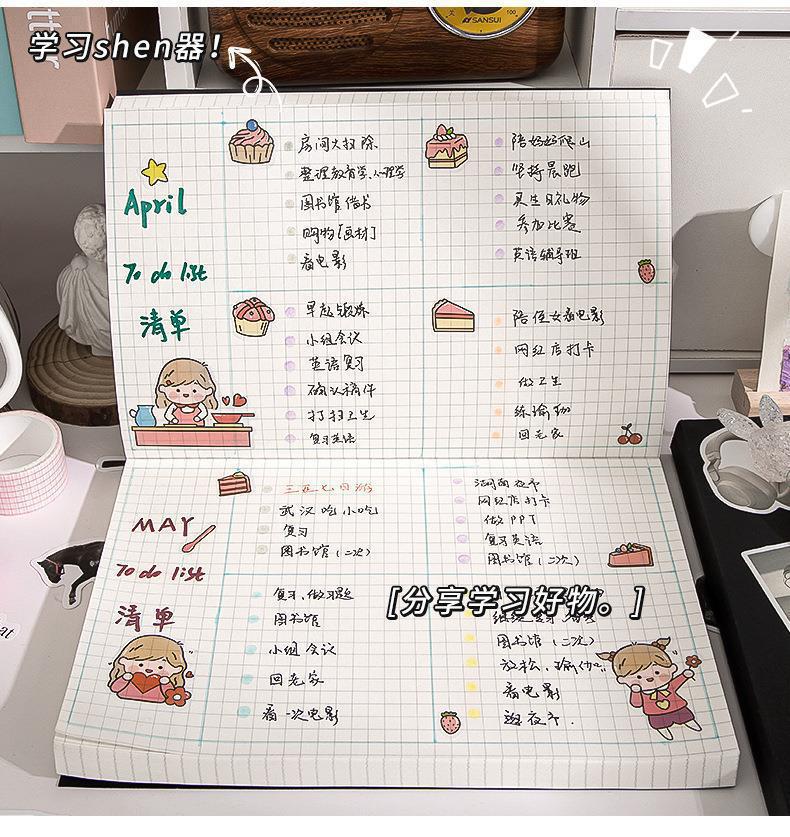 学习shen器！
SANSUI
100
April
To do list
清单
房间大扫除
整理教育学、心理学
图书馆借书
购物[画材]
看电影
陪妈妈爬山
坚持晨跑
买生日礼物
参加比赛
英语辅导班
早起锻炼
小组会议
英语复习
确认稿件
打扫卫生
复习英语
陪侄女看电影
网红店打卡
做卫生
练瑜珈
回老家
MAY
To do list
清单
三亚七日游
武汉吃小吃
复习
图书馆（二次）
夜市
网红店打卡
做PPT
复习英语
图书馆（二次）
复习、做习题
图书馆
小组会议
回老家
看一次电影
[分享学习好物。]
图书馆（二次）
放松、瑜伽
看电影
逛夜市.